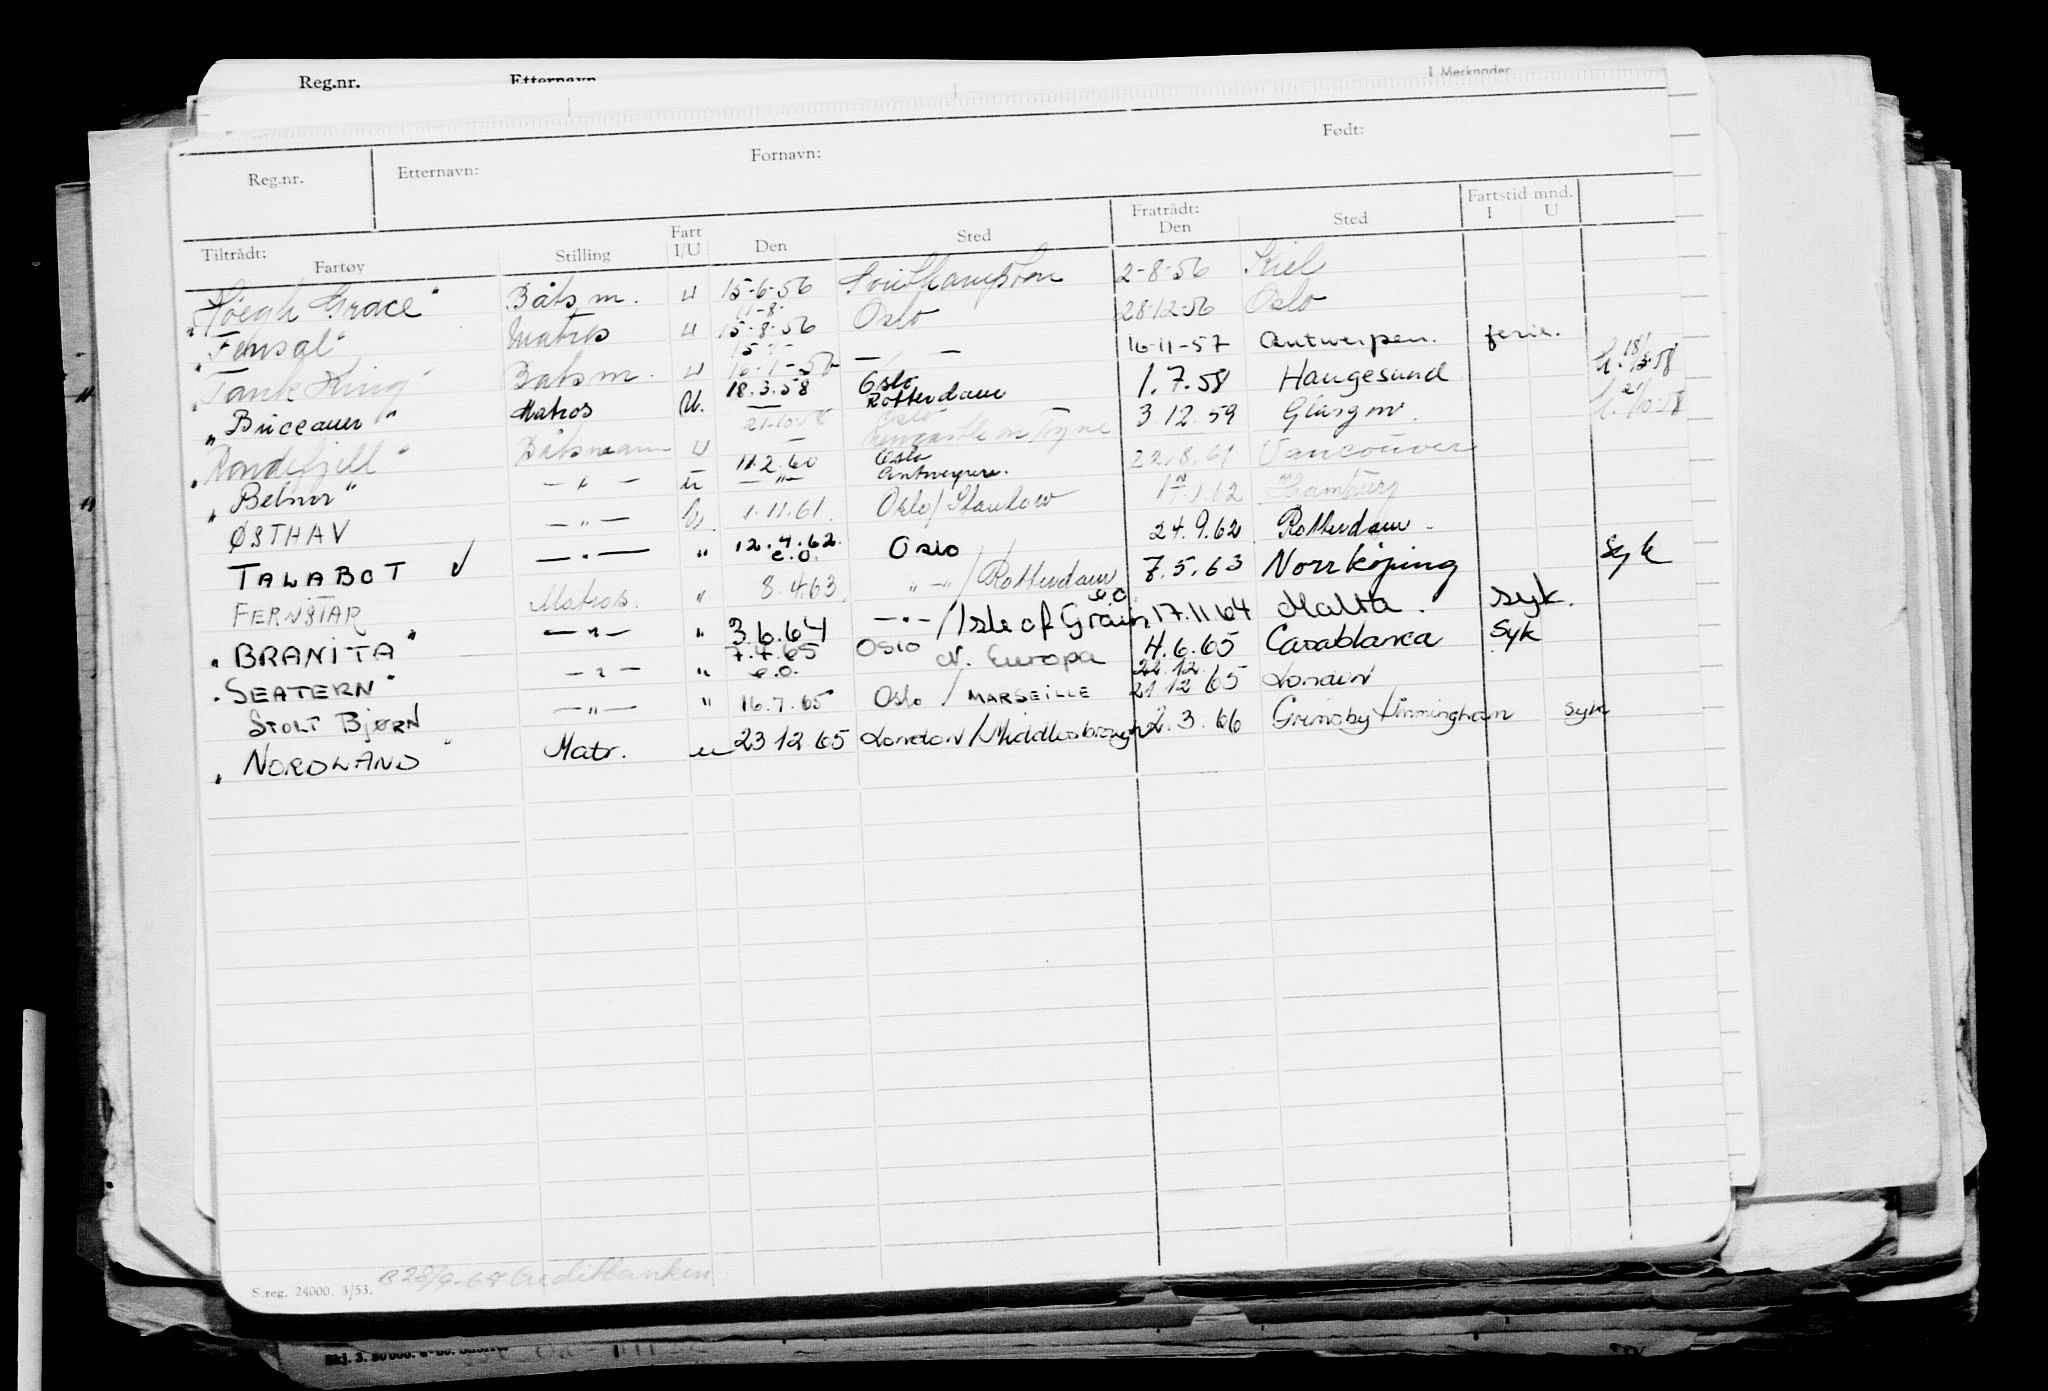 Reg.nr. Etternavn I Merknader
Reg.nr. Etternavn: Fornavn: Født:
Tiltrådt: Fratrådt: Fartstid mnd.
Fartøy Stilling Fart I/U Den Sted Den Sted I U
"Høegh Grace" Båtsm. u 15-6-56 Southampton 2-8-56 Kiel
11-8-
"Fensal" Matros u 15-8-56 Oslo 28-12-56 Oslo
"Tank King" Båtsm. u — — 16-11-57 Antwerpen. ferie.
"Briceauer" Matros U. 18.3.58 Oslo Rotterdam 1.7.58 Haugesund
"Rondefjell" Båtsmann u 21-10-58 Oslo Newcastle on Tyne 3.12.59 Glasgow.
"Belnor" —"— u 11.2.60 —"— Oslo Antwerpen. 22.8.61 Vancouver
ØSTHAV —"— U. 1.11.61. Oslo/Stanlow 1.62 Hamburg
TALABOT √ —"— " 12.4.62. e.o. Oslo 24.9.62 Rotterdam
FERNSTAR Matros. " 8.4.63. "—"/Rotterdam e.o. 7.5.63 Norrköping Syk
"BRANITA" —"— " 3.6.64 —"—/Isle of Grain 17.11.64 Malta. syk.
"SEATERN" —"— " 7.4.65 e.o. OSLO N. Europa 4.6.65 Casablanca Syk
STOLT BJØRN —"— " 16.7.65 Oslo / MARSEILLE 22.12. 21.12 65 London
"NORDLAND" Matr. u 23.12.65 London/Middlesbrough 2.3.66 Grimsby/Immingham syk
S.reg. 24000. 3/53. Creditbanken